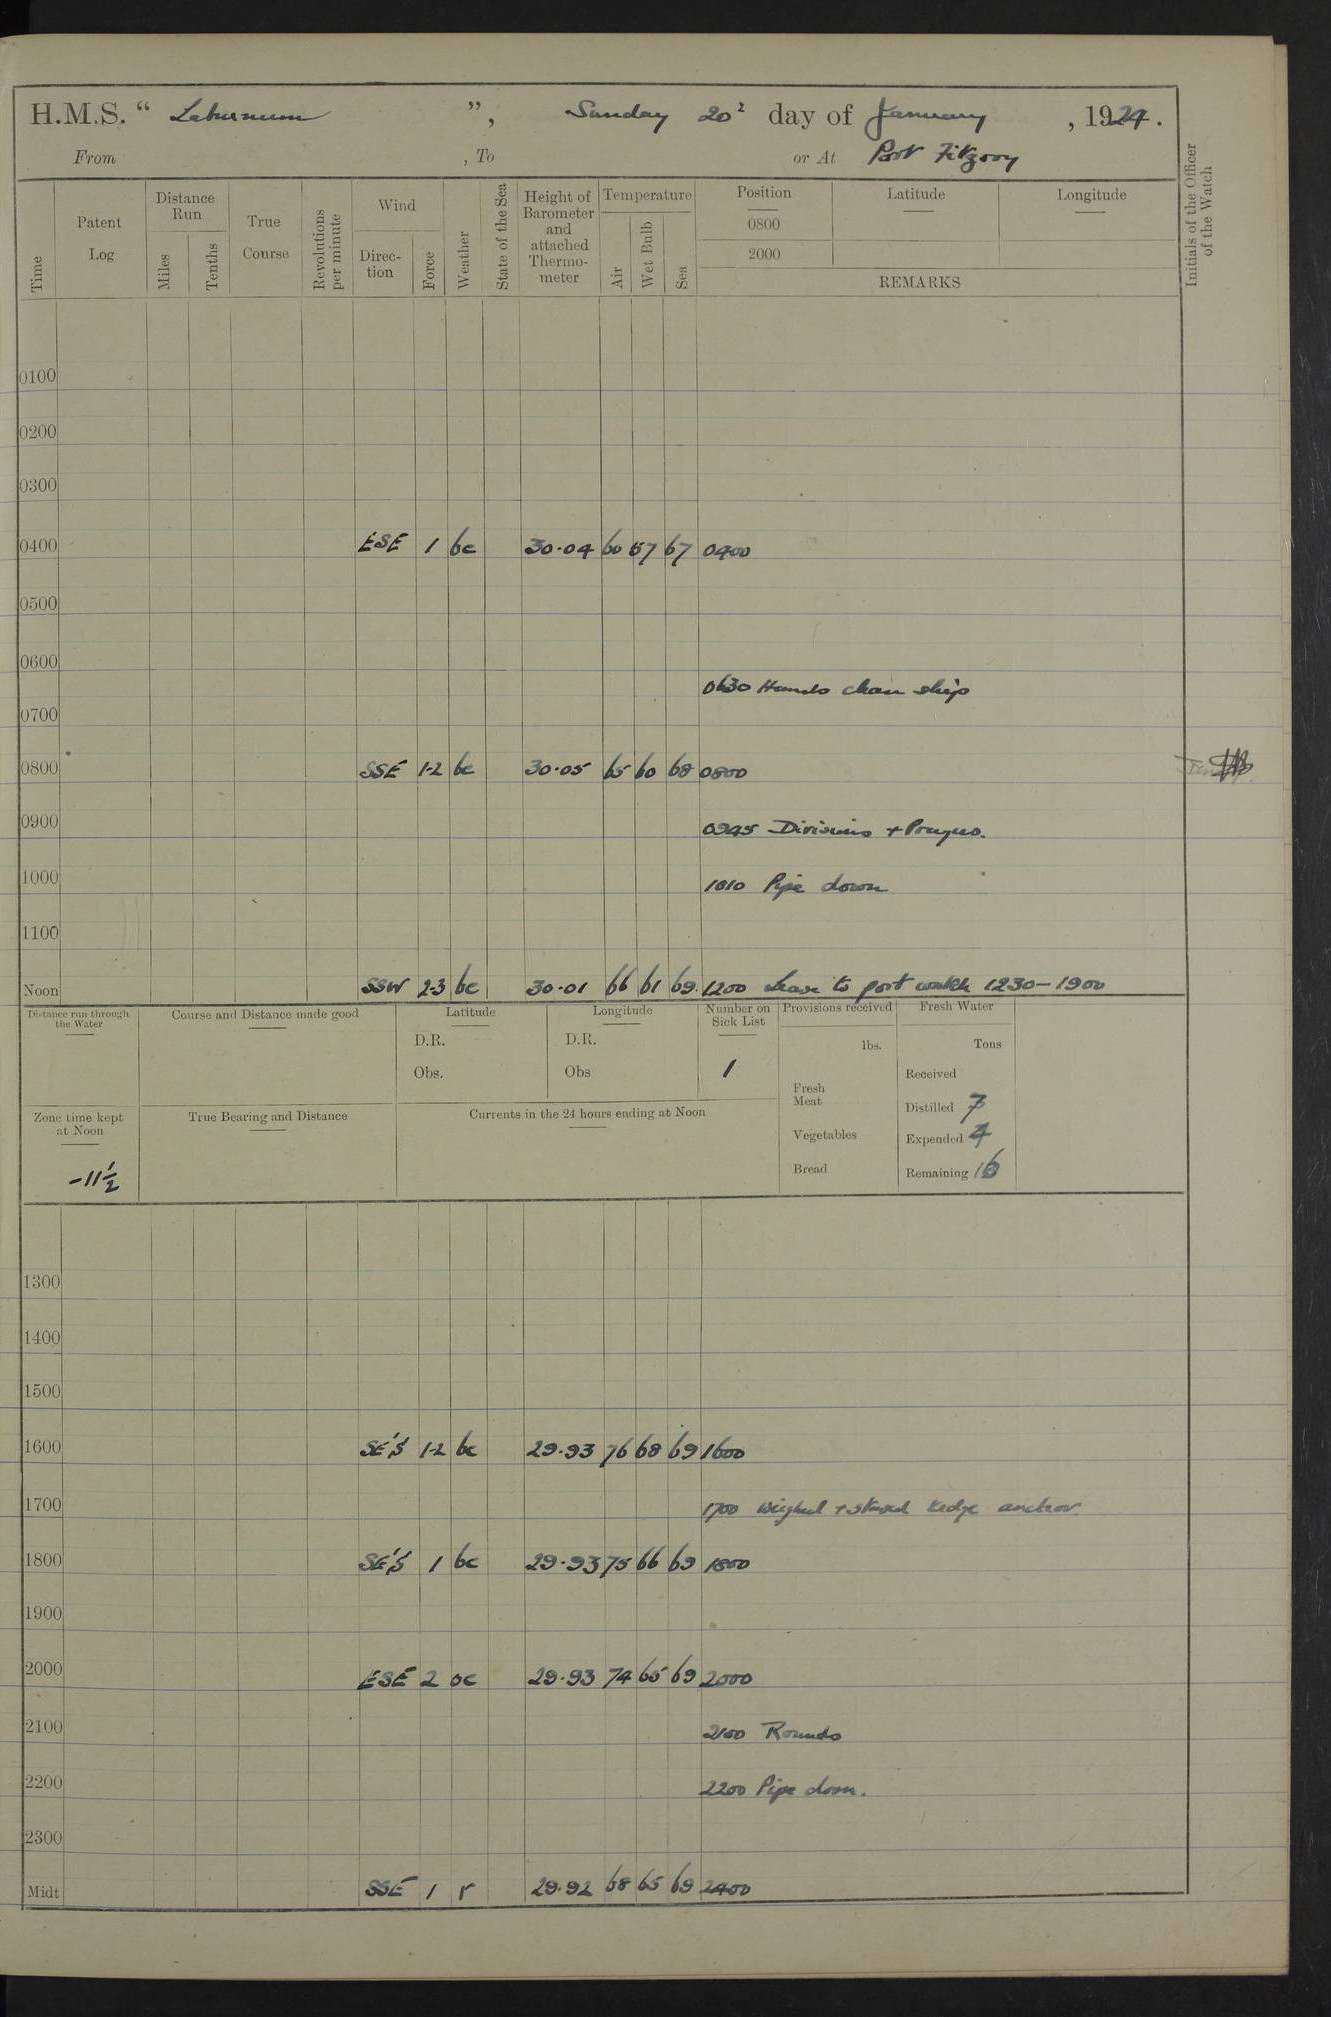 H.M.S. “ Laburnum ”, Sunday 20th day of January , 1924.
From , To or At Port Fitzroy
Time Patent Log Distance Run Miles Tenths True Course Revolutions per minute Wind Direc-tion Force Weather State of the Sea Height of Barometer and attached Thermo-meter Temperature Air Wet Bulb Sea Position Latitude Longitude Initials of the Officer of the Watch
0800
2000
REMARKS
0100
0200
0300
0400 ESE 1 bc 30·04 60 57 67 0400
0500
0600
0630 Hands clean ship
0700
0800 SSE 1-2 bc 30·05 65 60 68 0800
0900
0945 Divisions + Prayers.
1000
1010 Pipe down
1100
Noon SSW 2-3 bc 30·01 66 61 69 1200 Leave to port watch 1230-1900
Distance run through the Water Course and Distance made good Latitude Longitude Number on Sick List Provisions received Fresh Water
D.R. D.R. lbs. Tons
Obs. Obs 1 Received
Fresh Meat
Zone time kept at Noon True Bearing and Distance Currents in the 24 hours ending at Noon Distilled 7
Vegetables Expended 4
-11½ Bread Remaining 16
1300
1400
1500
1600 SE'S 1-2 bc 29·93 76 68 69 1600
1700 1700 Weighed + stowed kedge anchor.
1800 SE'S 1 bc 29·93 75 66 69 1800
1900
2000 ESE 2 oc 29·93 74 65 69 2000
2100 2100 Rounds
2200 2200 Pipe down.
2300
Midt SSE 1 r 29·92 68 65 69 2400